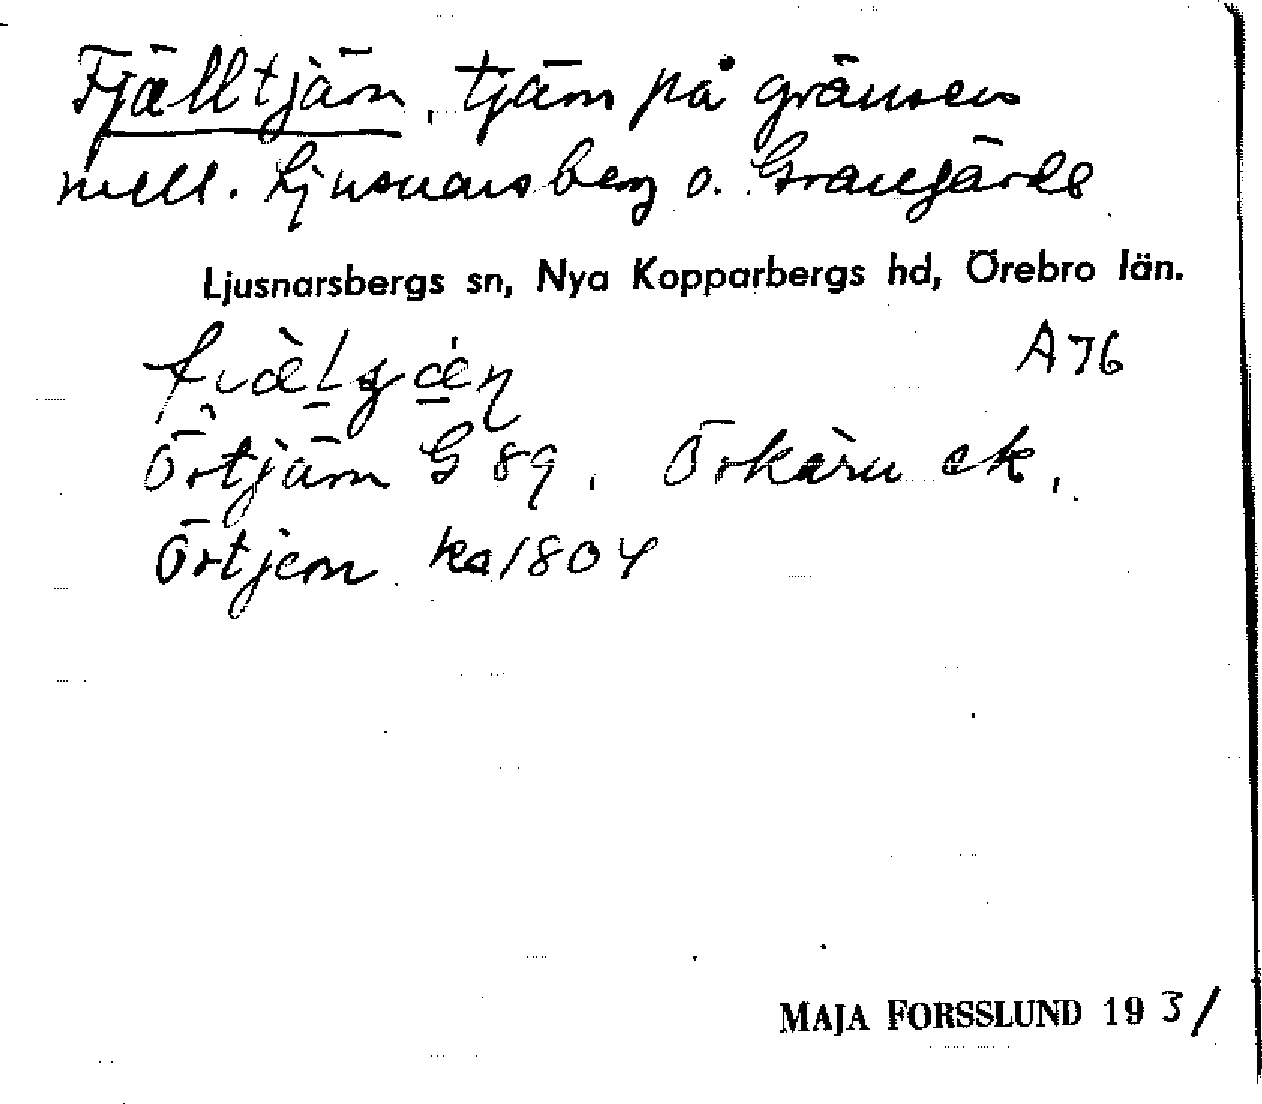 Fjälltjärn, tjärn på gränsen
mell. Ljusnarsberg o. Grangärde
Ljusnarsbergs sn, Nya Kopparbergs hd, Örebro län.
A76
Örtjärn G 89, Örkärn ek,
Örtjern ka 1804
MAJA FORSSLUND 1931